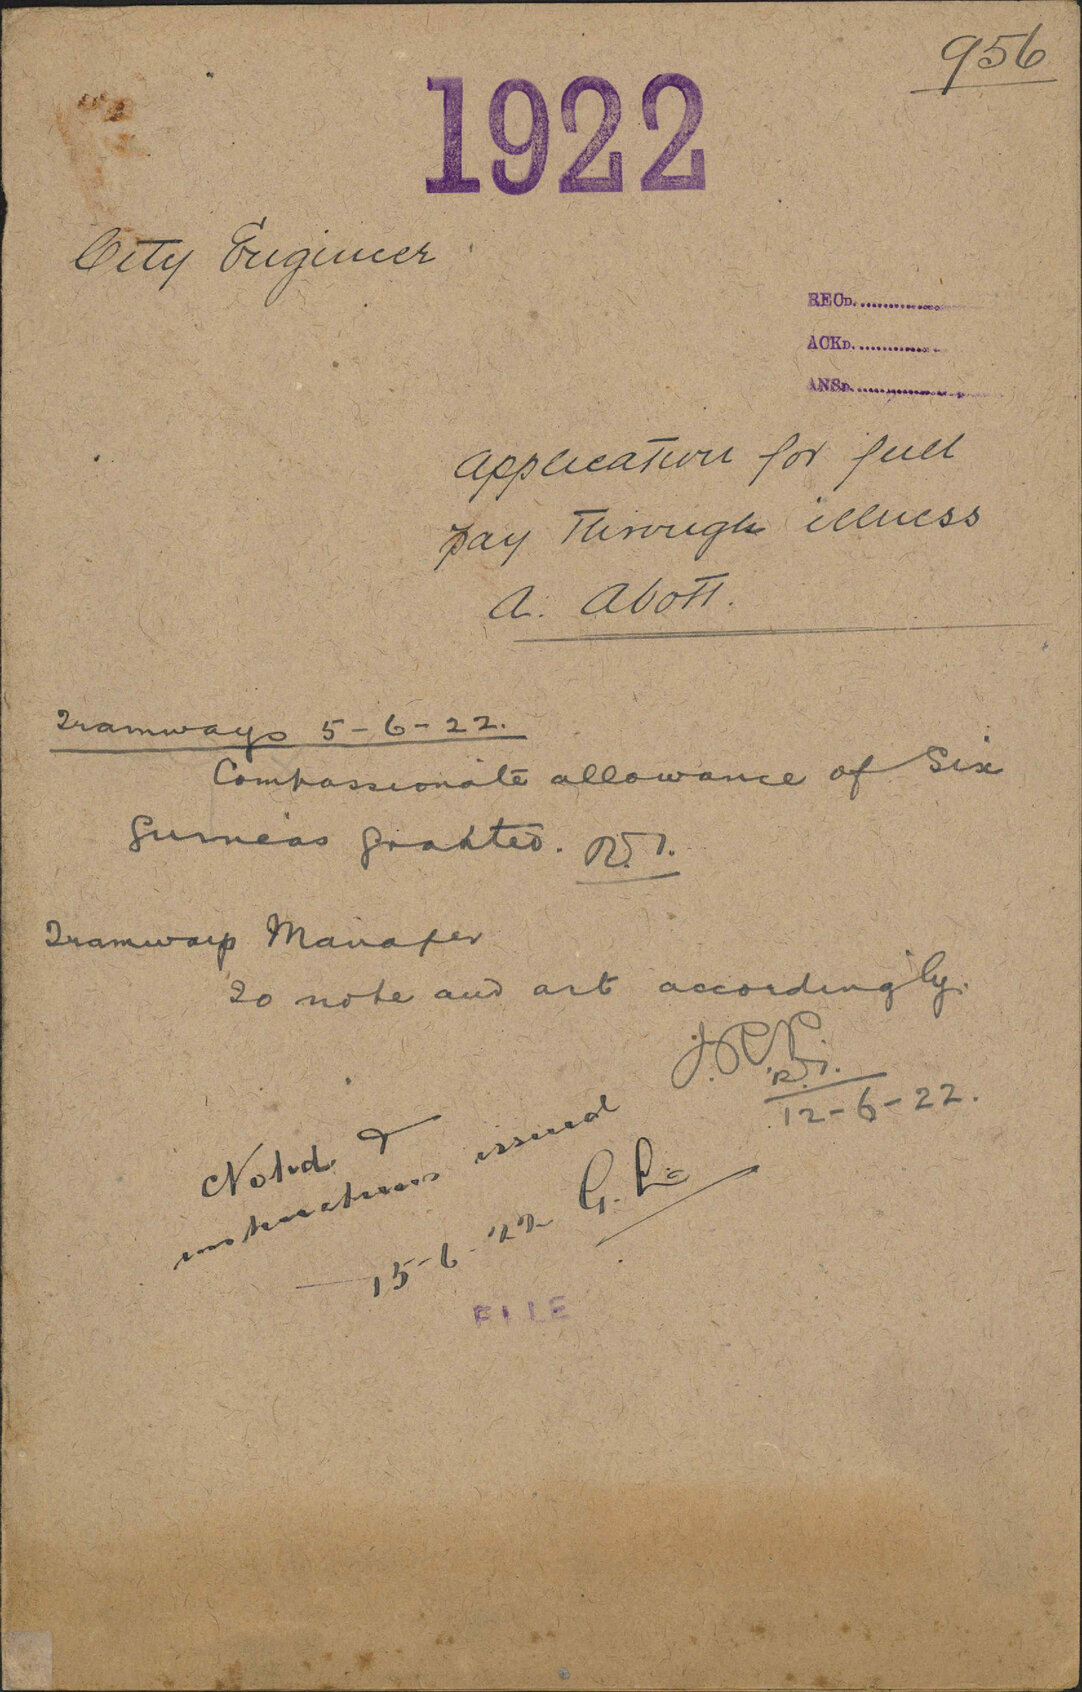 956
1922
City Engineer
RECD.
ACKD.
ANSD.
Application for full
pay through illness
A. Abott.
Tramways 5-6-22.
Compassionate allowance of Six
Guineas granted.
Tramways Manager
To note and act accordingly.
12-6-22.
Noted &
instructions issued
15-6-22
FILE